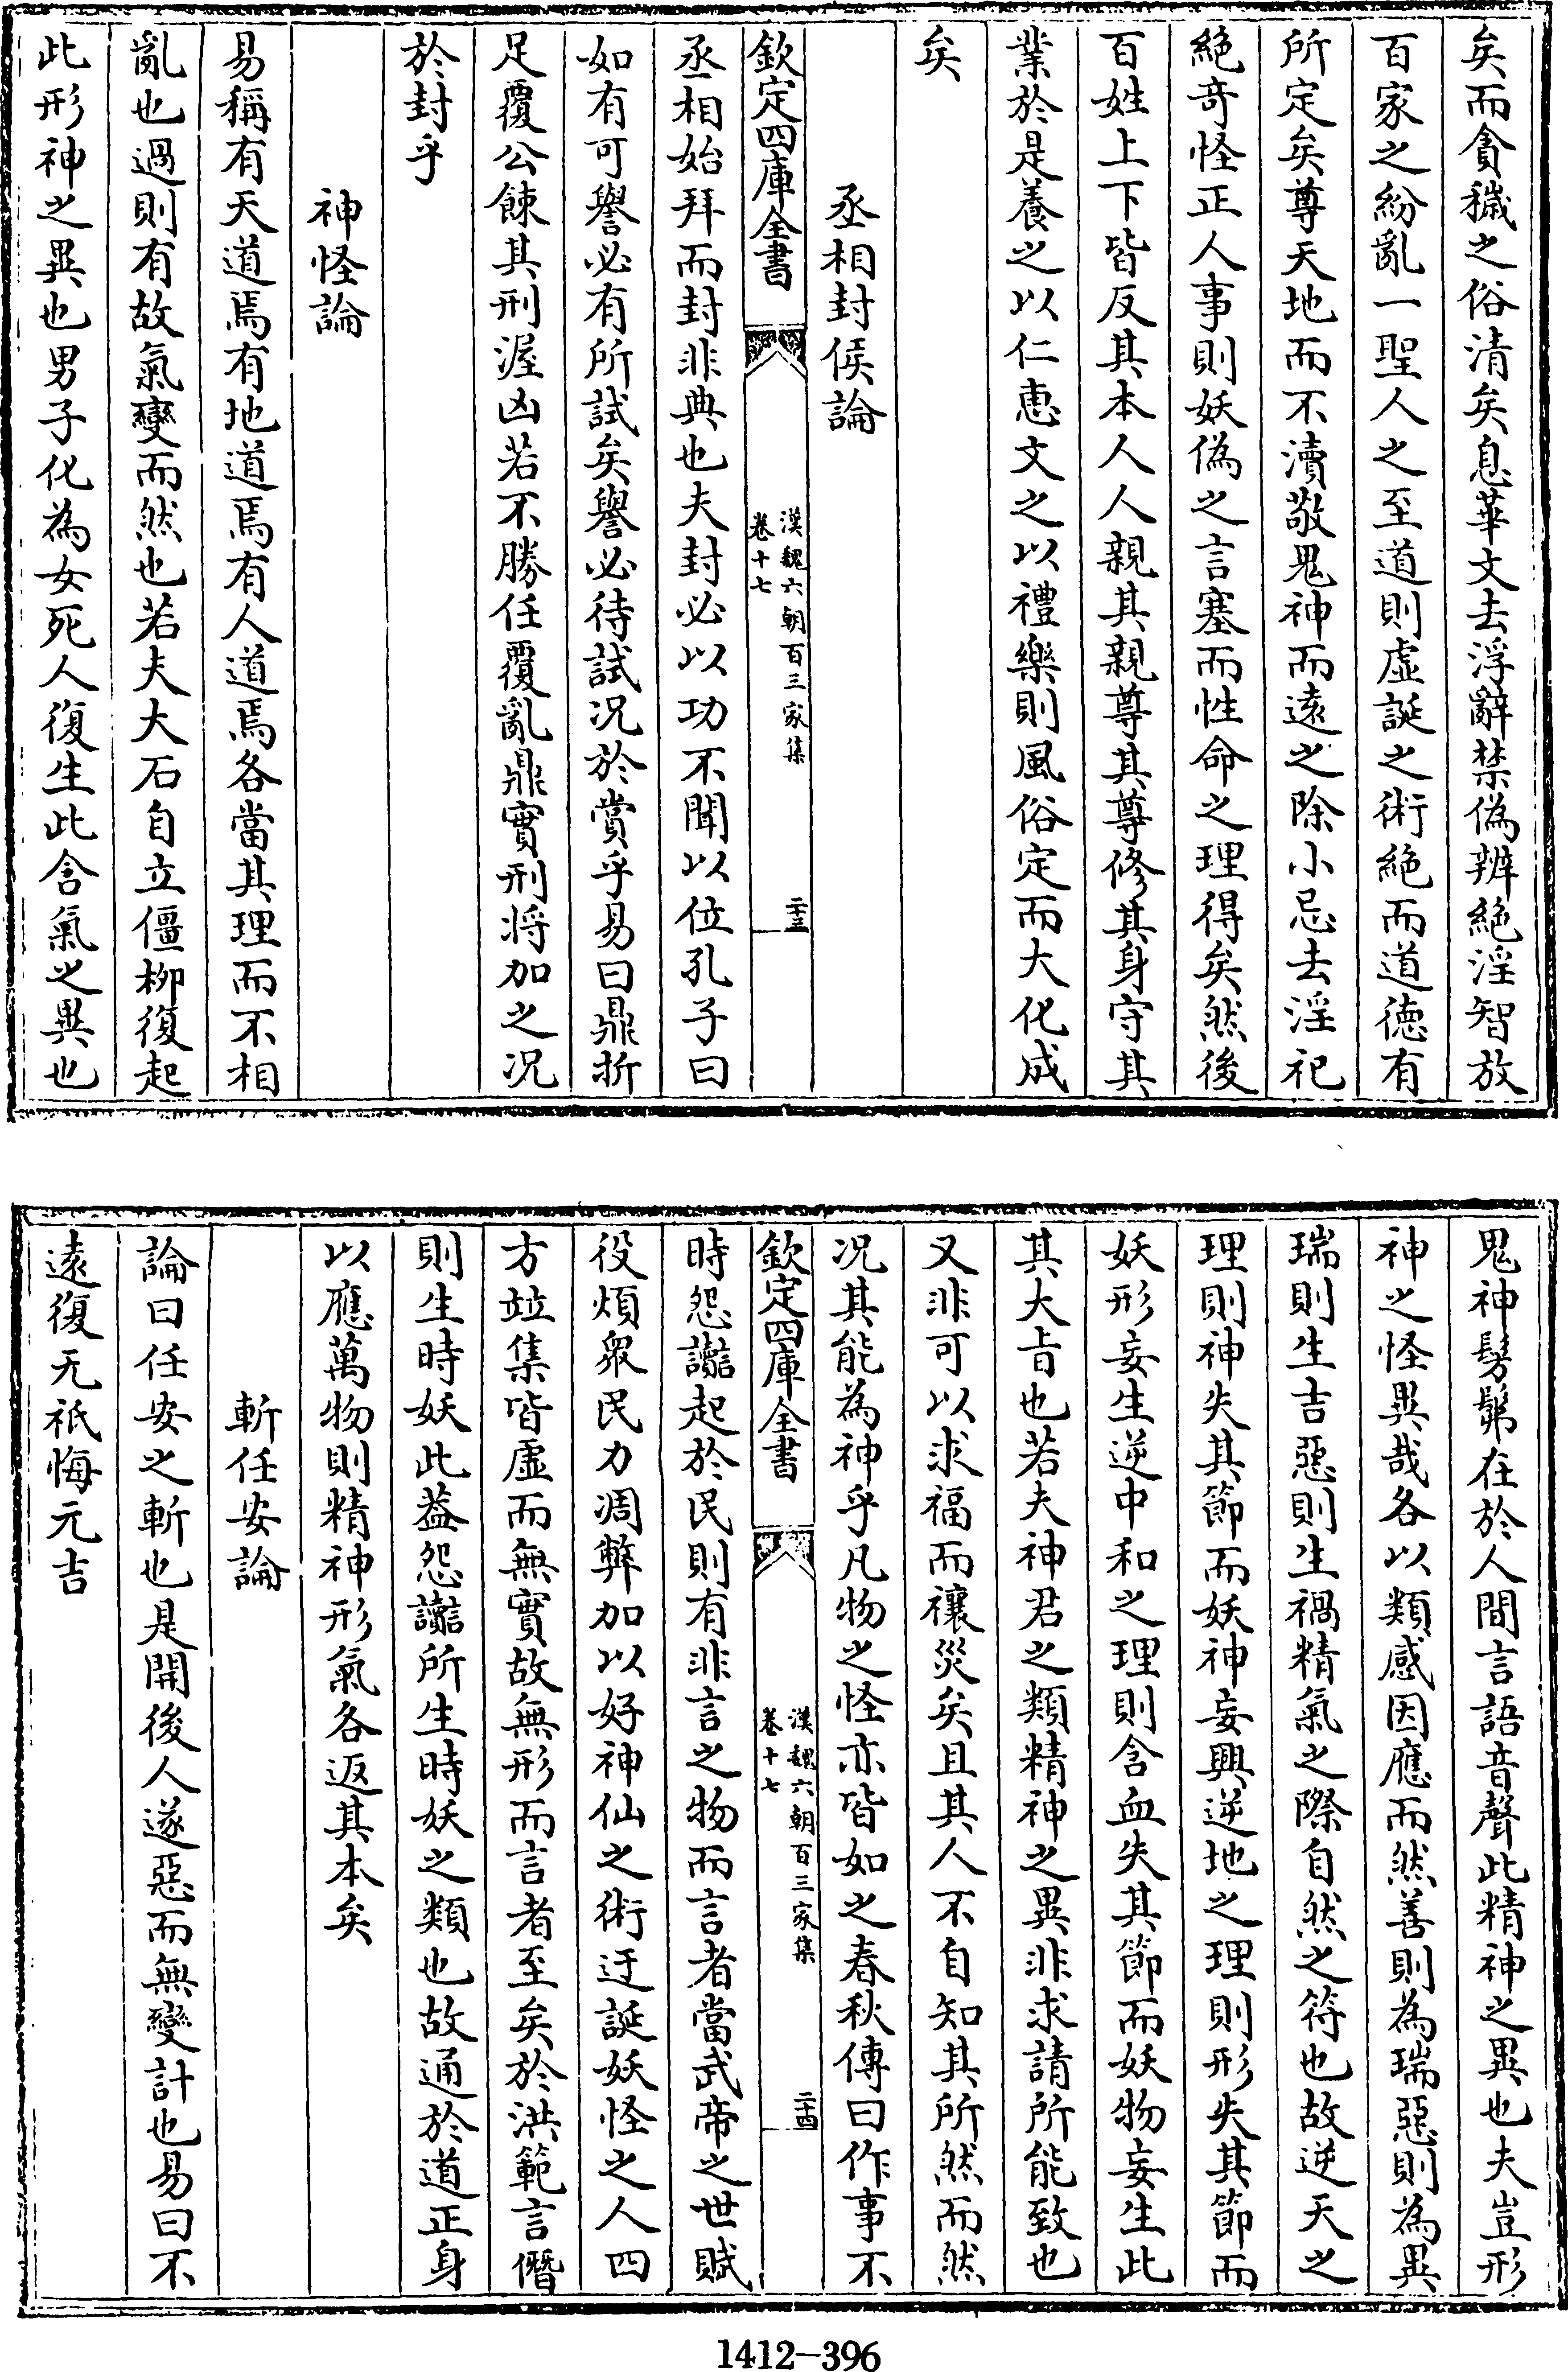 矣而貪穢之俗清矣息華文去浮辭禁偽辨絶淫智放
百家之紛亂一聖人之至道則虛誕之術絶而道徳有
所定矣尊天地而不瀆敬鬼神而遠之除小忌去淫祀
絶竒怪正人事則妖偽之言塞而性命之理得矣然後
百姓上下皆反其本人人親其親尊其尊修其身守其
業於是養之以仁恵文之以禮樂則風俗定而大化成
矣
丞相封侯論
欽定四庫全書
漢魏六朝百三家集
卷十七
二十三
丞相始拜而封非典也夫封必以功不聞以位孔子曰
如有可譽必有所試矣譽必待試况於賞乎易曰鼎折
足覆公餗其刑渥凶若不勝任覆亂鼎實刑将加之况
於封乎
神怪論
易稱有天道焉有地道焉有人道焉各當其理而不相
亂也過則有故氣變而然也若夫大石自立僵柳復起
此形神之異也男子化為女死人復生此含氣之異也
鬼神髣髴在於人間言語音聲此精神之異也夫豈形
神之怪異哉各以類感因應而然善則為瑞惡則為異
瑞則生吉惡則生禍精氣之際自然之符也故逆天之
理則神失其節而妖神妄興逆地之理則形失其節而
妖形妄生逆中和之理則含血失其節而妖物妄生此
其大㫖也若夫神君之類精神之異非求請所能致也
又非可以求福而禳災矣且其人不自知其所然而然
况其能為神乎凡物之怪亦皆如之春秋傳曰作事不
欽定四庫全書
漢魏六朝百三家集
卷十七
二十四
時怨讟起於民則有非言之物而言者當武帝之世賦
役煩衆民力凋弊加以好神仙之術迂誕妖怪之人四
方竝集皆虛而無實故無形而言者至矣於洪範言僭
則生時妖此葢怨讟所生時妖之類也故通於道正身
以應萬物則精神形氣各返其本矣
斬任安論
論曰任安之斬也是開後人遂惡而無變計也易曰不
逺復无祇悔元吉
1412—396